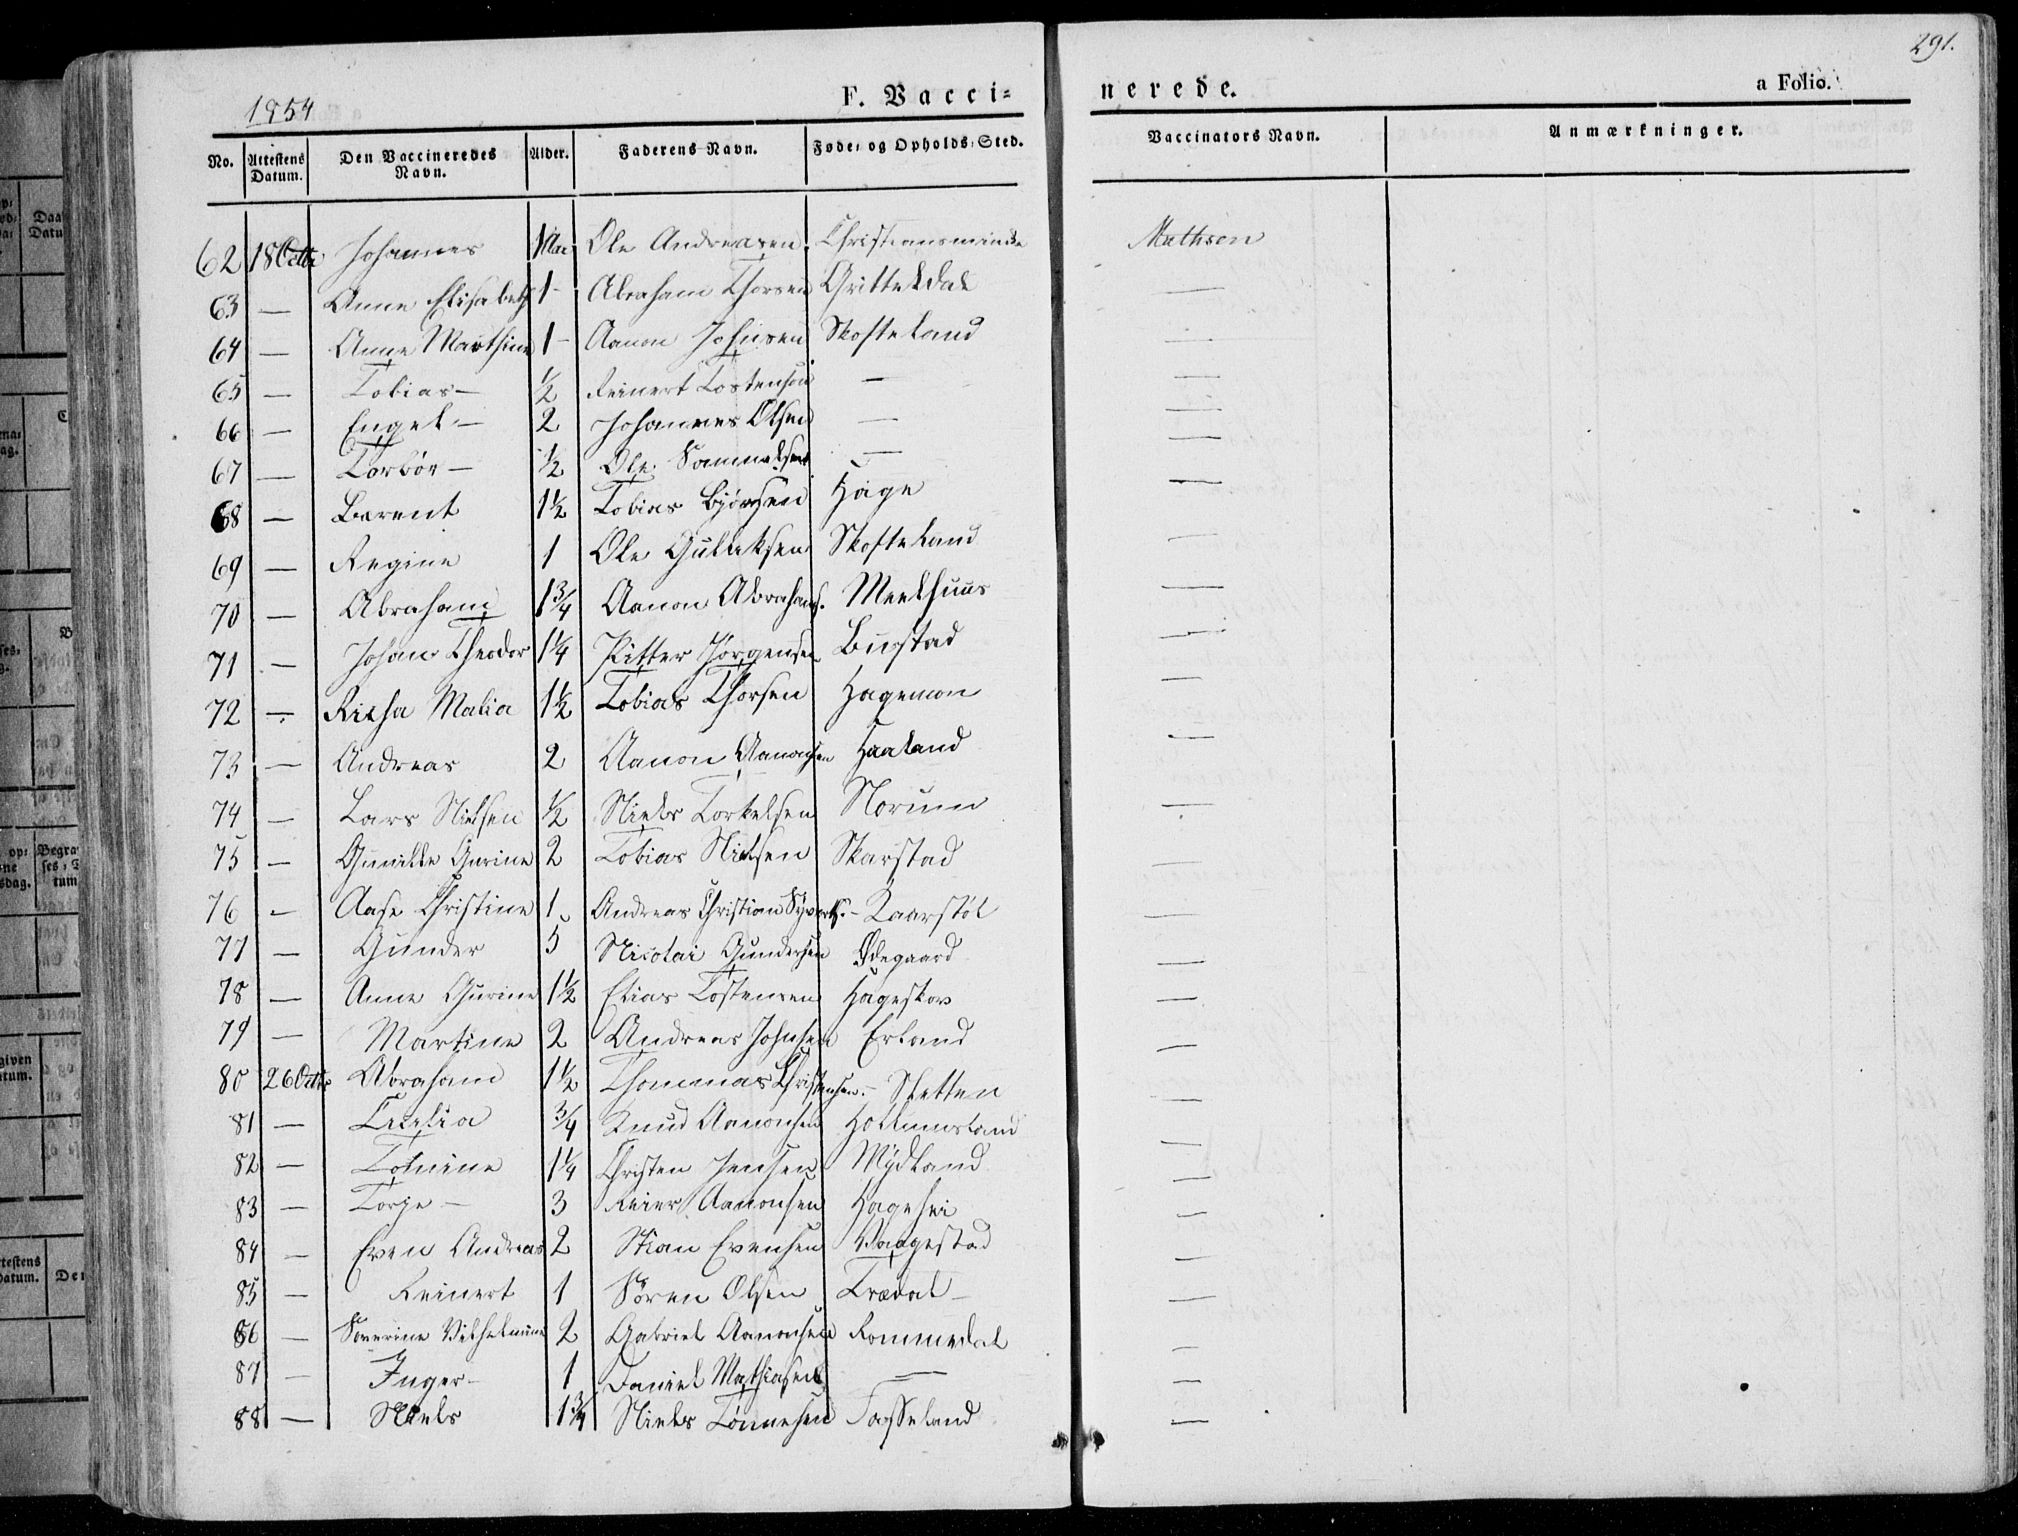 291.
1854 F. Vacci= nerede. a Folio.
No. Attestens Datum. Den Vaccineredes Navn. Alder. Faderens Navn. Føde= og Opholds=Sted. Vaccinators Navn. Anmærkninger.
62 18 Octbr Johannes 1 Ole Andreasen Christiansminde Mathson
63 — Anne Elisabeth 1 — Abraham Thorsen Grittekdal —
64 — Anne Marthine 1 — Aanon Johnsen Skofteland —
65 — Tobias — 1/2 Reinert Tostensen — —
66 — Engel — 2 Johannes Olsen — —
67 — Torbór — 1/2 Ole Samuelsen — —
68 — Berent 1 1/2 Tobias Bjørnsen Hage —
69 — Regine 1 Ole Gulleksen Skofteland —
70 — Abraham 1 3/4 Aanon Abrahams. Meelhuus —
71 — Johan Theodor 1 1/4 Pitter Jørgensen Bustad —
72 — Risha Malia 1 1/2 Tobias Thorsen Hagemon —
73 — Andreas 2 Aanon Aanonsen Haaland —
74 — Lars Nielsen 1/2 Niels Torkelsen Norum —
75 — Gunilde Gurine 2 Tobias Nielsen Skarstad —
76 — Aase Christine 1 Andreas Christian Syverts. — Kaarstøl —
77 — Gunder 5 Nicolai Gundersen Ødegaard —
78 — Anne Gurine 1 1/2 Elias Tostensen Hageskov —
79 — Martine 2 Andreas Johnsen Erland —
80 26 Octbr Abraham 1 1/2 Thommas Christensen. — Sletten —
81 — Cecilia 3/4 Knud Aanonsen Hollumsland —
82 — Tomine 1 1/4 Christen Jensen Mydland —
83 — Torje — 3 Reier Aanonsen Hagehei —
84 — Even Andreas 2 Stian Evensen Vaagestad —
85 — Reinert 1 Sören Olsen Trædal — —
86 — Severine Vilhelmine 2 Gabriel Aanonsen Rommedal —
87 — Inger — 1 Daniel Mathiasen — —
88 — Niels 1 3/4 Niels Tönnesen Fosseland —